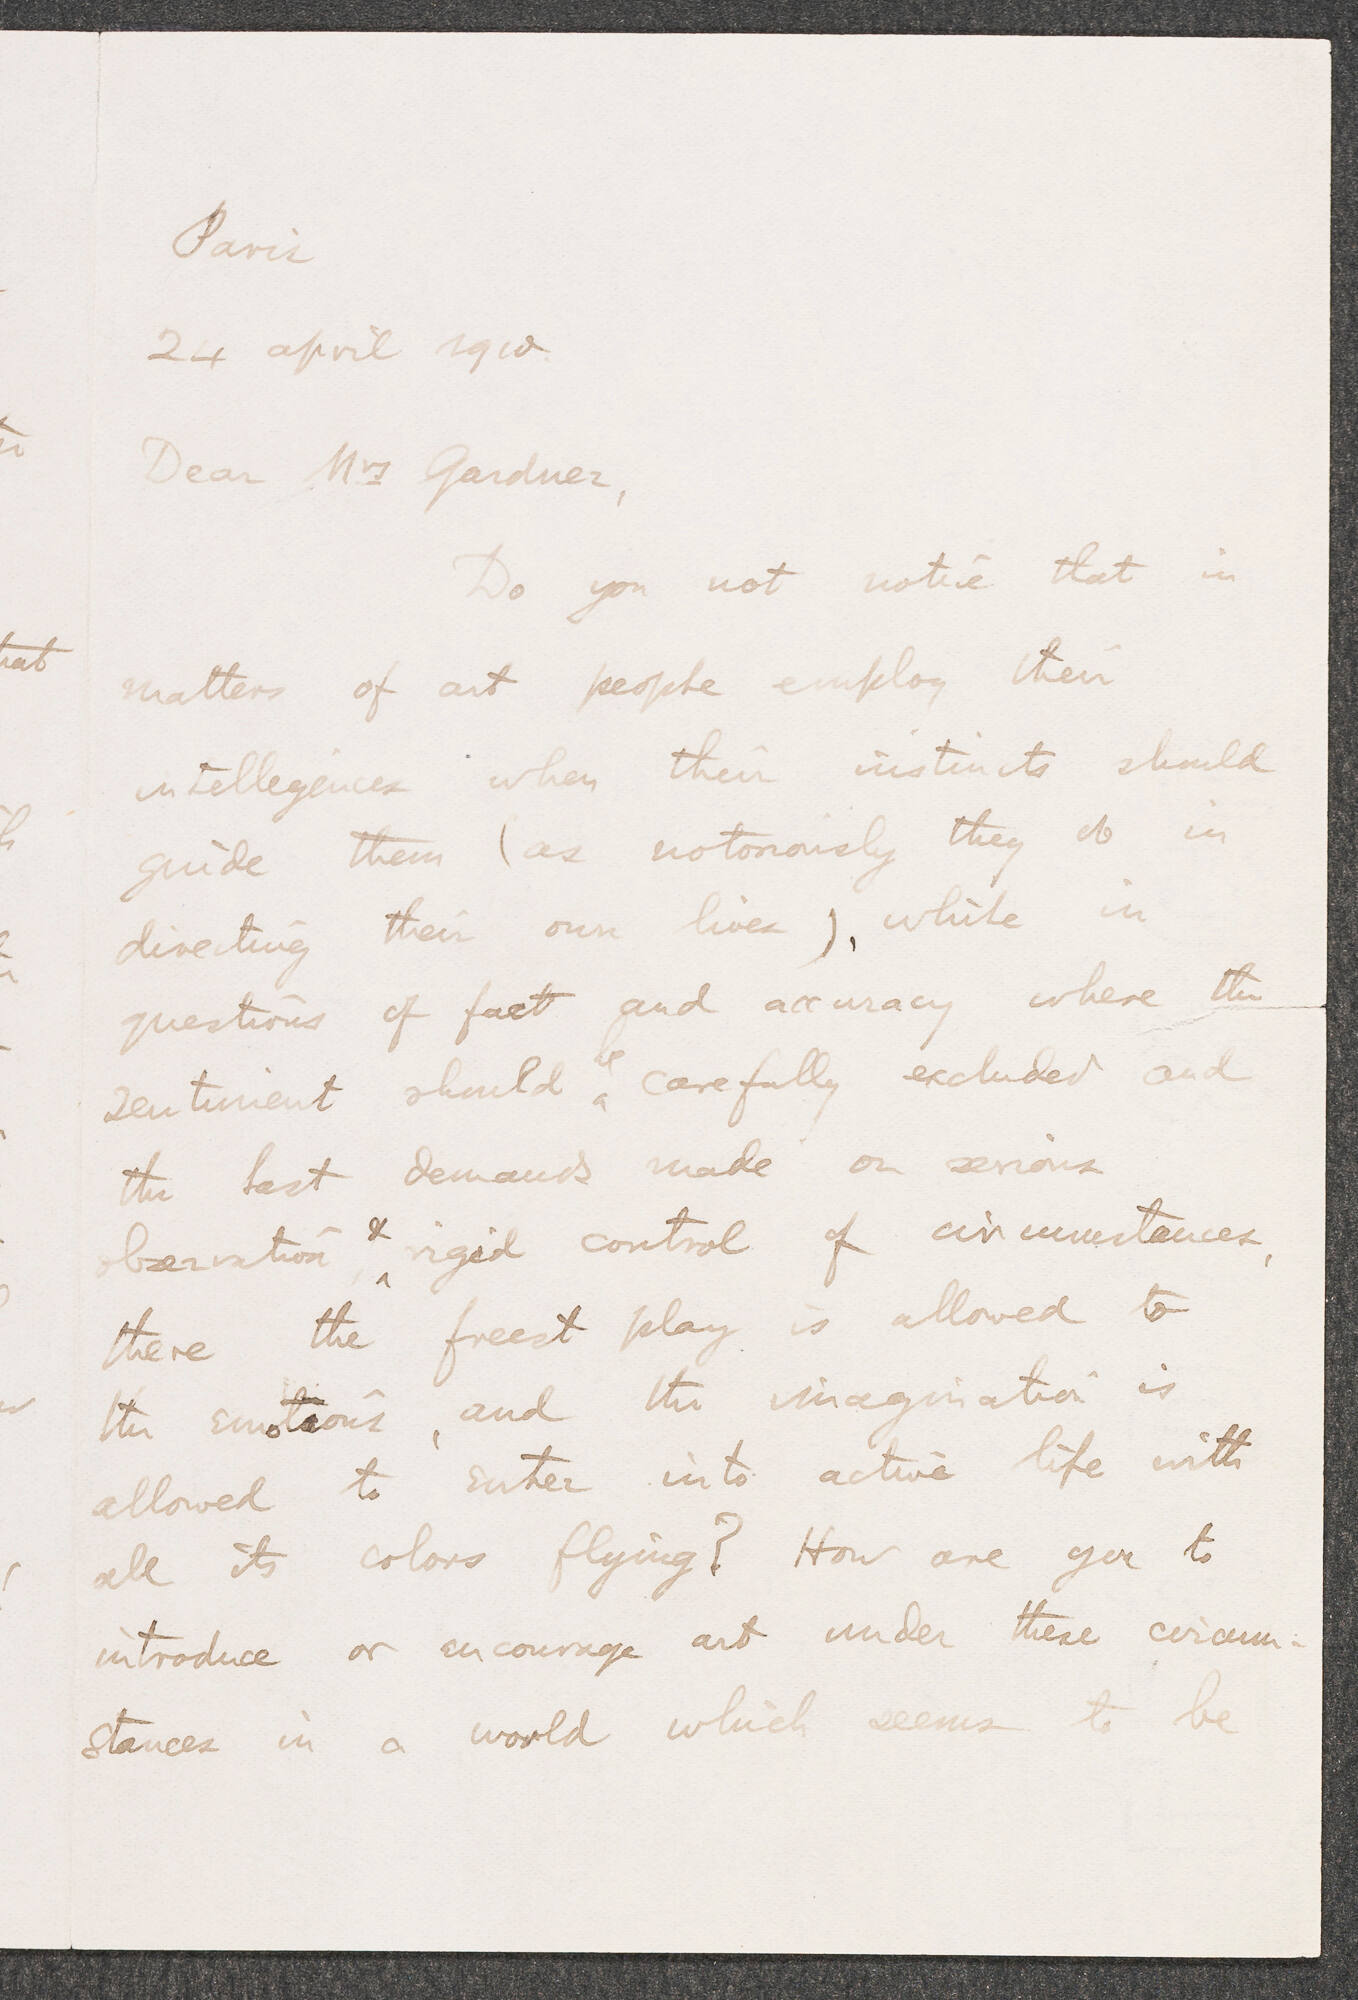 Paris
24 april 1910.
Dear Mrs Gardner,
Do you not notice that in
matters of art people employ their
intellegences when their instincts should
guide them (as notoriously they do in
directing their own lives), while in
questions of fact and accuracy where the
sentiment should be carefully excluded and
the last demands made on serious
observation & rigid control of circumstances,
there the freest play is allowed to
the emotions, and the imagination is
allowed to enter into active life with
all its colors flying? How are you to
introduce or encourage art under these circum-
stances in a world which seems to be